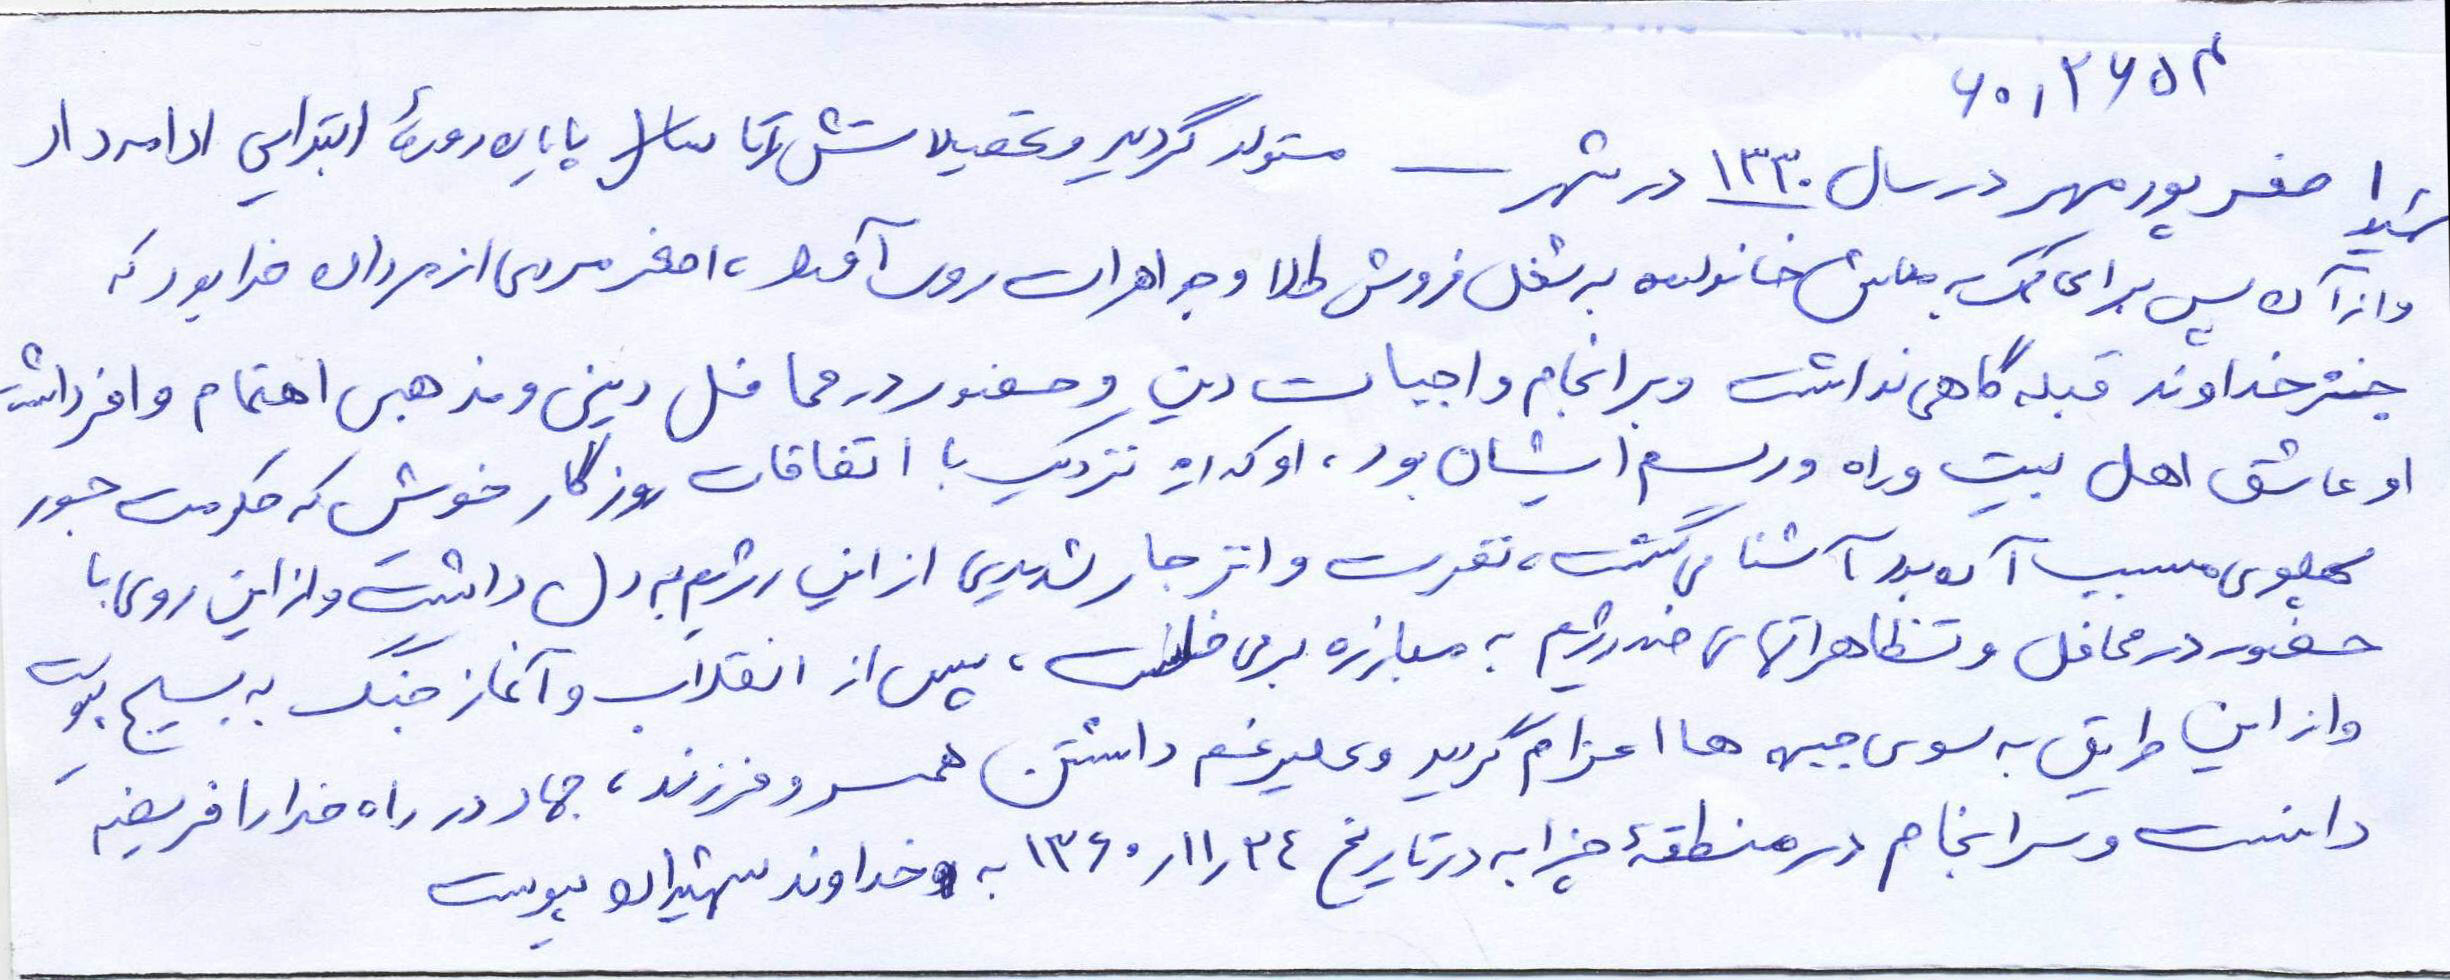 ۶۰۱۲۶۵۳
شهید اصغر پورمهر در سال ۱۳۳۰ در شهر — متولد گردید و تحصیلاتش تا پایان دورهٔ ابتدایی ادامه داد
و از آن پس برای کمک به معاش خانواده به شغل فروش طلا و جواهرات روی آورد، اصغر مردی از مردان خدا بود که
جنز خداوند قبله گاهی نداشت و بر انجام واجبات دین و حضور در محافل دینی و مذهبی اهتمام وافر داشت
او عاشق اهل بیت و راه و رسم ایشان بود، او که از نزدیک با اتفاقات روزگار خوش که حکومت جور
پهلوی مسبب آن بود آشنا می گشت، نفرت و انزجار شدیدی از این رژیم به دل داشت و از این روی با
حضور در محافل و تظاهراتهای ضد رژیم به مبارزه برمی خاست، پس از انقلاب و آغاز جنگ به بسیج پیوست
و از این طریق به سوی جبهه ها اعزام گردید و علیرغم داشتن همسر و فرزند، جهاد در راه خدا را فریضه
دانست و سرانجام در منطقهٔ چزابه در تاریخ ۱۳۶۰٫۱۱٫۲۴ به خداوند شهیدان پیوست